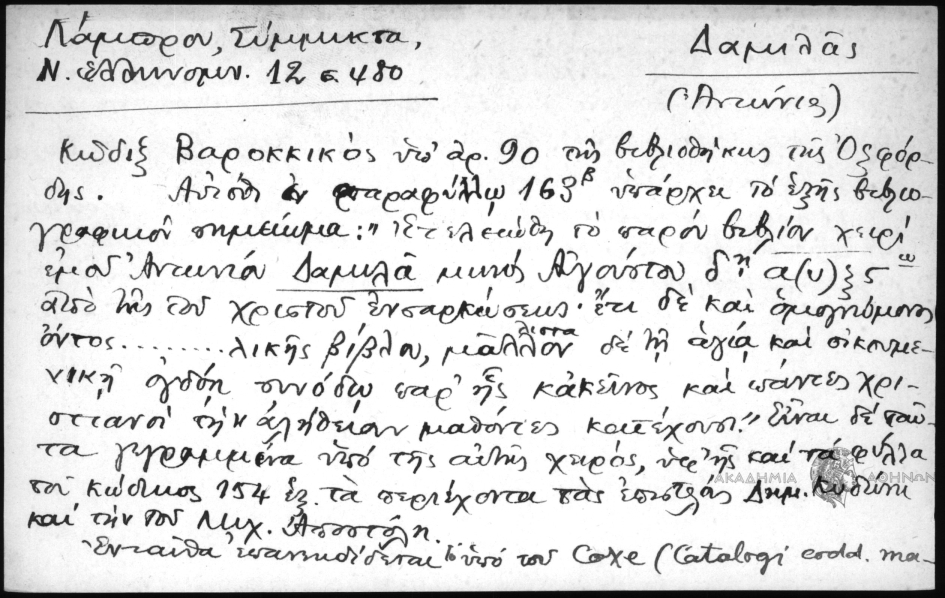 Λάμπρου, Σύμμικτα,
Ν. Ἑλληνομν. 12 σ 480
Δαμιλᾶς
(Ἀντώνιος)
Κῶδιξ Βαροκκικὸς ὑπ' ἀρ. 90 τῆς βιβλιοθήκης τῆς Ὀξφόρ-
δης. Αὐτόθι ἐν παραφύλλῳ 163β ὑπάρχει τὸ ἑξῆς βιβλιο-
γραφικὸν σημείωμα: "Ἐτελειώθη τὸ παρὸν βιβλίον χειρὶ
ἐμοῦ Ἀντωνίου Δαμιλᾶ μηνὸς Αὐγούστου δῃ α(υ)ξςω
ἀπὸ τῆς τοῦ χριστοῦ ἐνσαρκώσεως· ἔτι δὲ καὶ ὁμογνώμονος
ὄντος........λικῆς βίβλου, μᾶλλον λιστα δὲ τῇ ἁγίᾳ καὶ οἰκουμε-
νικῇ ὀγδόῃ συνόδῳ παρ' ἧς κἀκεῖνος καὶ πάντες χρι-
στιανοὶ τὴν ἀλήθειαν μαθόντες κατέχουσι." Εἶναι δὲ ταῦ-
τα γεγραμμένα ὑπὸ τῆς αὐτῆς χειρός, ὑφ' ἧς καὶ τὰ φύλλα
τοῦ κώδικος 154 ἑξ. τὰ περιέχοντα τὰς ἐπιστολὰς Δημ. Κυδώνη
καὶ τὴν τοῦ Μιχ. Ἀποστόλη.
Ἐνταῦθα ἐπανεκδίδεται τὸ ὑπὸ τοῦ Coxe (Catalogi codd. ma-
ΑΚΑΔΗΜΙΑ ΑΘΗΝΩΝ